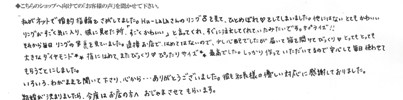 ◆こちらのショップへ向けての「お客様の声」を聞かせて下さい。
私がネットで婚約指輪をさがしてました。Ha-LaLaさんのリングを見て、ひとめぼれをしてしまいました。他にはない とても かわいい
リングがすごく気に入り、彼に見せた所「すごくかわいい」と言ってくれ、すぐに注文してくれたみたいです。サプライズ!
それから毎日リングの写真を見ていました。直接お店ではめてはないので、少し心配でしたが 届いて箱を開けてびっくり とっても とっても
大きなダイヤモンド** 指にはめて またびっくり ぴったりサイズ** 最高でした。しっかり 作って いただいてますので 安心して毎日 使わせて
もらうことにしました。
いろいろ、わがままを聞いて下さり、心から… ありがとうございました。彼とお店様の優しい対応に感謝しております。
結婚が決まりましたら、今度はお店の方へおじゃまさせてもらいます。